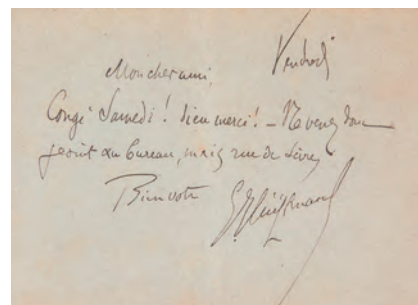 Vendredi
Mon cher ami,
Congé Samedi ! dieu merci ! – Ne venez donc
point au bureau, mais rue de Sèvres
Bien votre